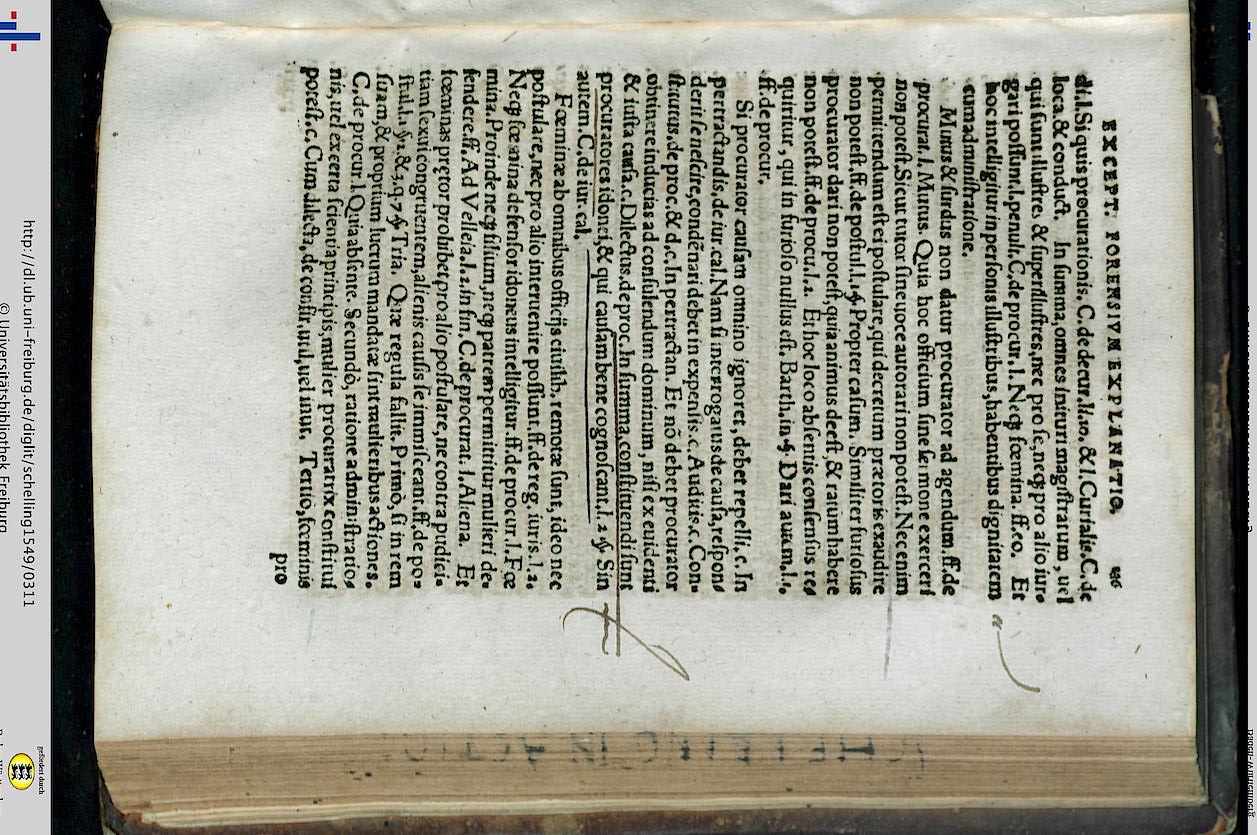 EXCEPT. FORENSIVM EXPLANATIO.
di. l. Si quis procurationis. C. de decur. li. 10. & l. Curialis. C. de
loca. & conduct. In summa, omnes inituri magistratum, uel
qui sunt illustres & superillustres, nec pro se, neq; pro alio iur-
gari possunt. l. penult. C. de procur. l. Neq; fœmina. ff. eo. Et
hoc intelligitur in personis illustribus, habentibus dignitatem
cum administratione.
Mutus & surdus non datur procurator ad agendum. ff. de
procurat. l. Mutus. Quia hoc officium sine sermone exerceri
non potest. Sicut tutor sine uoce autorari non potest. Nec enim
permittendum est ei postulare, qui decretum prætoris exaudire
non potest. ff. de postul. l. 1. §. Propter casum. Similiter furiosus
procurator dari non potest, quia animus deest, & ratum habere
non potest. ff. de procu. l. 2. Et hoc loco absentis consensus re-
quiritur, qui in furioso nullus est. Barth. in §. Dari autem. l. 1.
ff. de procur.
Si procurator causam omnino ignoret, debet repelli. c. In
pertractandis, de iur. cal. Nam si interrogatus de causa, respon-
derit se nescire, condēnari debet in expensis. c. Auditis. c. Con-
stitutus. de proc. & d. c. In pertractan. Et nō debet procurator
obtinere inducias ad consulendum dominum, nisi ex euidenti
& iusta causa. c. Dilectus. de proc. In summa, constituendi sunt
procuratores idonei, & qui causam bene cognoscant. l. 2. §. Sin
autem. C. de iur. cal.
Fœminæ ab omnibus officijs ciuilib. remotæ sunt, ideo nec
postulare, nec pro alio interuenire possunt. ff. de reg. iuris. l. 2.
Neq; fœmina defensor idoneus intelligitur. ff. de procur. l. Fœ
mina. Proinde neq; filium, neq; patrem permittitur mulieri de-
fendere. ff. Ad Velleia. l. 2. in fin. C. de procurat. l. Aliena. Et
fœminas prætor prohibet pro alio postulare, ne contra pudici-
tiam sexui congruentem, alienis causis se immisceant. ff. de po-
stul. l. 1. §. Tria. Quæ regula fallit. Primò, si in rem
suam, & proprium lucrum mandatæ sint mulieribus actiones.
C. de procur. l. Quia absente. Secundò, ratione administratio-
nis, uel ex certa scientia principis, mulier procuratrix constitui
potest. c. Cum dilecta, de confir. util. uel inut. Tertiò, fœminis
pro
http://dl.ub.uni-freiburg.de/diglit/schelling1549/0311
© Universitätsbibliothek Freiburg
gefördert durch